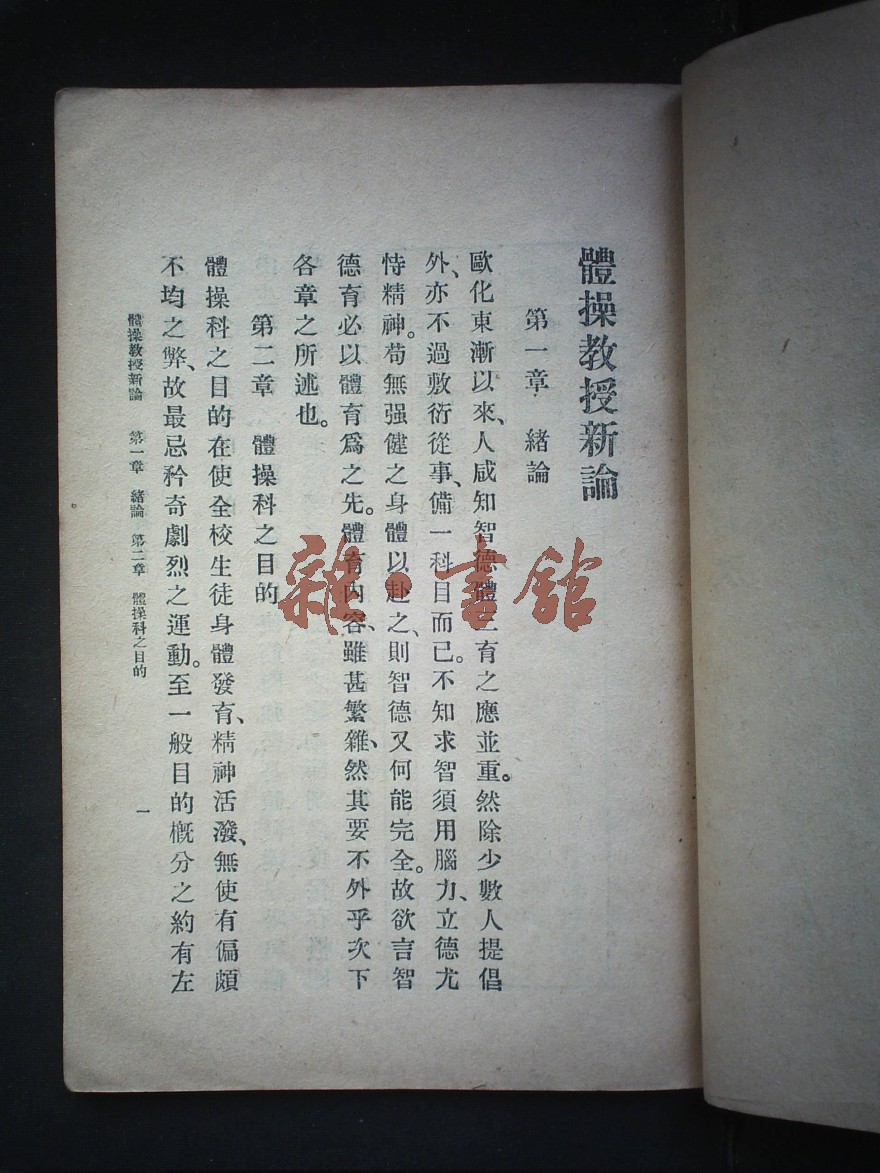 體操教授新論
第一章 緒論
歐化東漸以來、人咸知智德體三育之應並重。然除少數人提倡
外、亦不過敷衍從事、備一科目而已。不知求智須用腦力、立德尤
恃精神。苟無强健之身體以赴之、則智德又何能完全。故欲言智
德育必以體育爲之先。體育內容、雖甚繁雜、然其要不外乎次下
各章之所述也。
第二章 體操科之目的
體操科之目的在使全校生徒身體發育、精神活潑、無使有偏頗
不均之弊、故最忌矜奇劇烈之運動。至一般目的概分之約有左
體操教授新論 第一章 緒論 第二章 體操科之目的
一
雜·書館